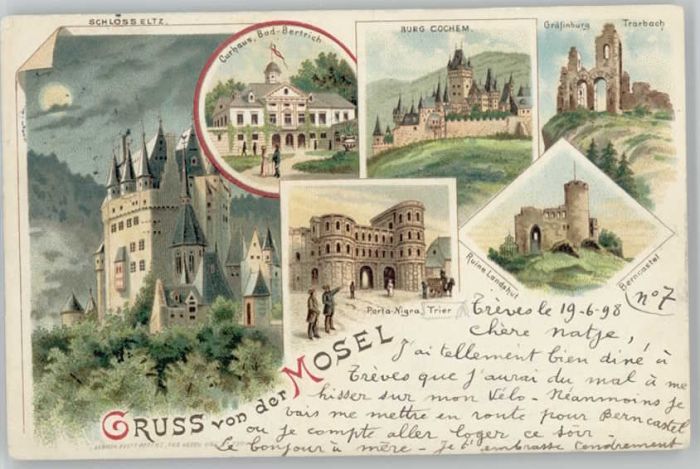 SCHLOSS ELTZ.
Curhaus, Bad-Bertrich
BURG COCHEM.
Gräfinburg Trarbach
Ruine Landshut
Berncastel
Porta-Nigra Trier
GRUSS von der MOSEL
n° 7
Trèves le 19-6-98
Chère natje,
J'ai tellement bien diné à
Trèves que j'aurai du mal à me
hisser sur mon vélo - Néanmoins je
vais me mettre en route pour Berncastel
ou je compte aller loger ce soir -
Le bonjour à mère - Je t'embrasse tendrement